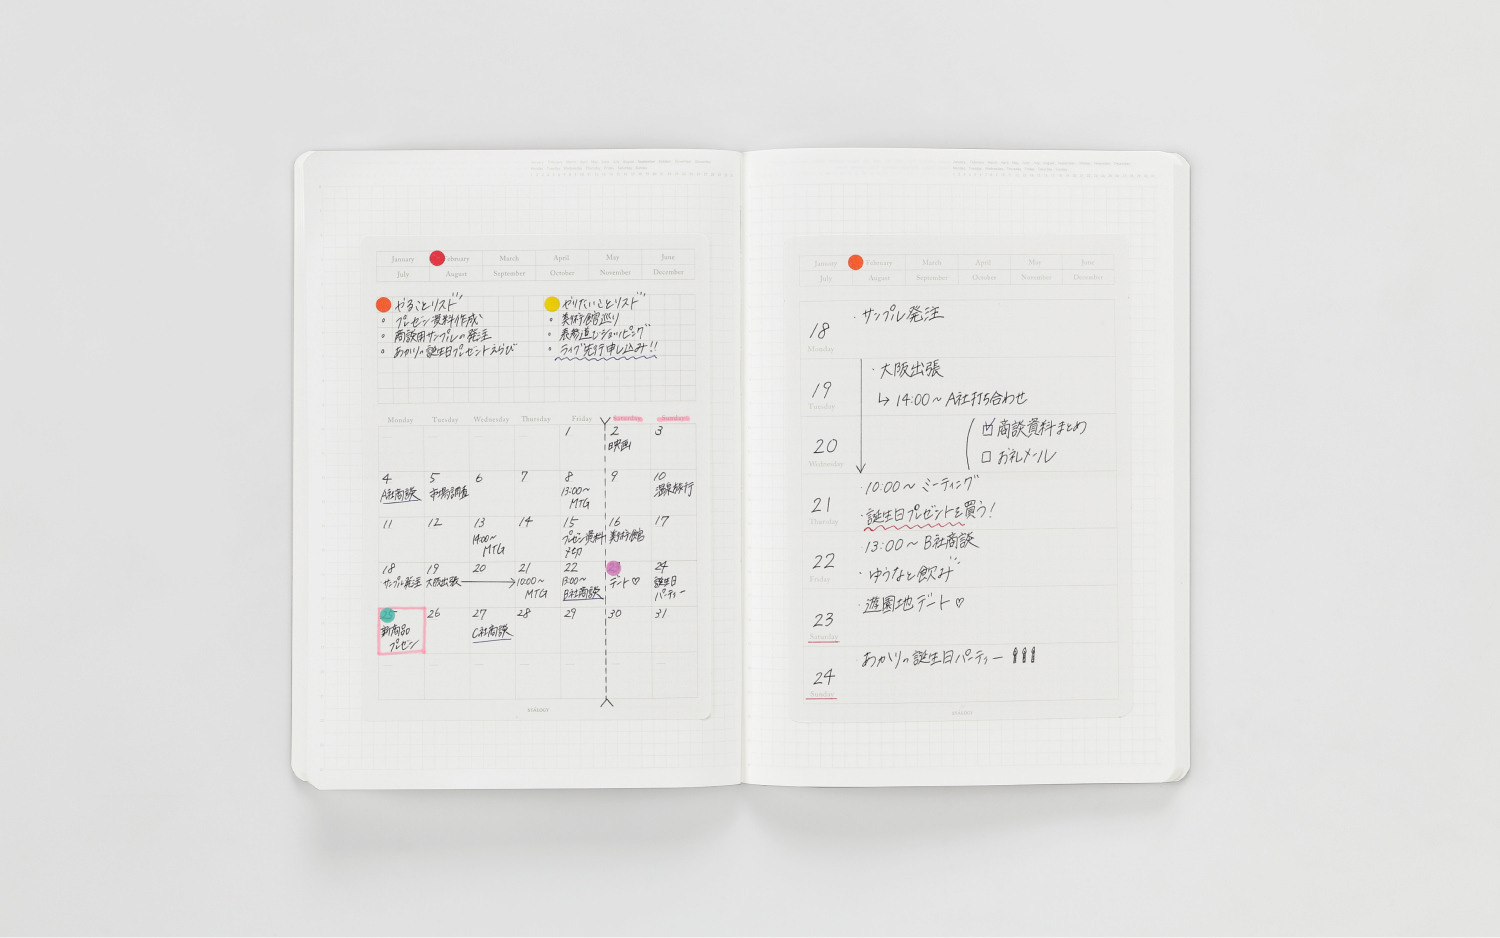 January February March April May June
July August September October November December
やることリスト
・プレゼン資料作成
・商談用サンプルの発注
・あかりの誕生日プレゼントえらび
やりたいことリスト
・美術館巡り
・表参道でショッピング
・ライブ先行申し込み!!
Monday Tuesday Wednesday Thursday Friday Saturday Sunday
1 2 3
映画
4 5 6 7 8 9 10
A社商談 市場調査 13:00~ MTG 温泉旅行
11 12 13 14 15 16 17
14:00~ MTG プレゼン資料〆切 美術館
18 19 20 21 22 23 24
サンプル発注 大阪出張 → 10:00~ MTG 13:00~ B社商談 デート♡ 誕生日パーティー
25 26 27 28 29 30 31
新商品プレゼン C社商談
SYALOGY
January February March April May June
July August September October November December
18 Monday
・サンプル発注
19 Tuesday
・大阪出張
↳ 14:00~ A社打ち合わせ
20 Wednesday
☑ 商談資料まとめ
□ お礼メール
21 Thursday
・10:00~ ミーティング
・誕生日プレゼントを買う!
22 Friday
13:00~ B社商談
・ゆうなと飲み
23 Saturday
・遊園地デート♡
24 Sunday
あかりの誕生日パーティー